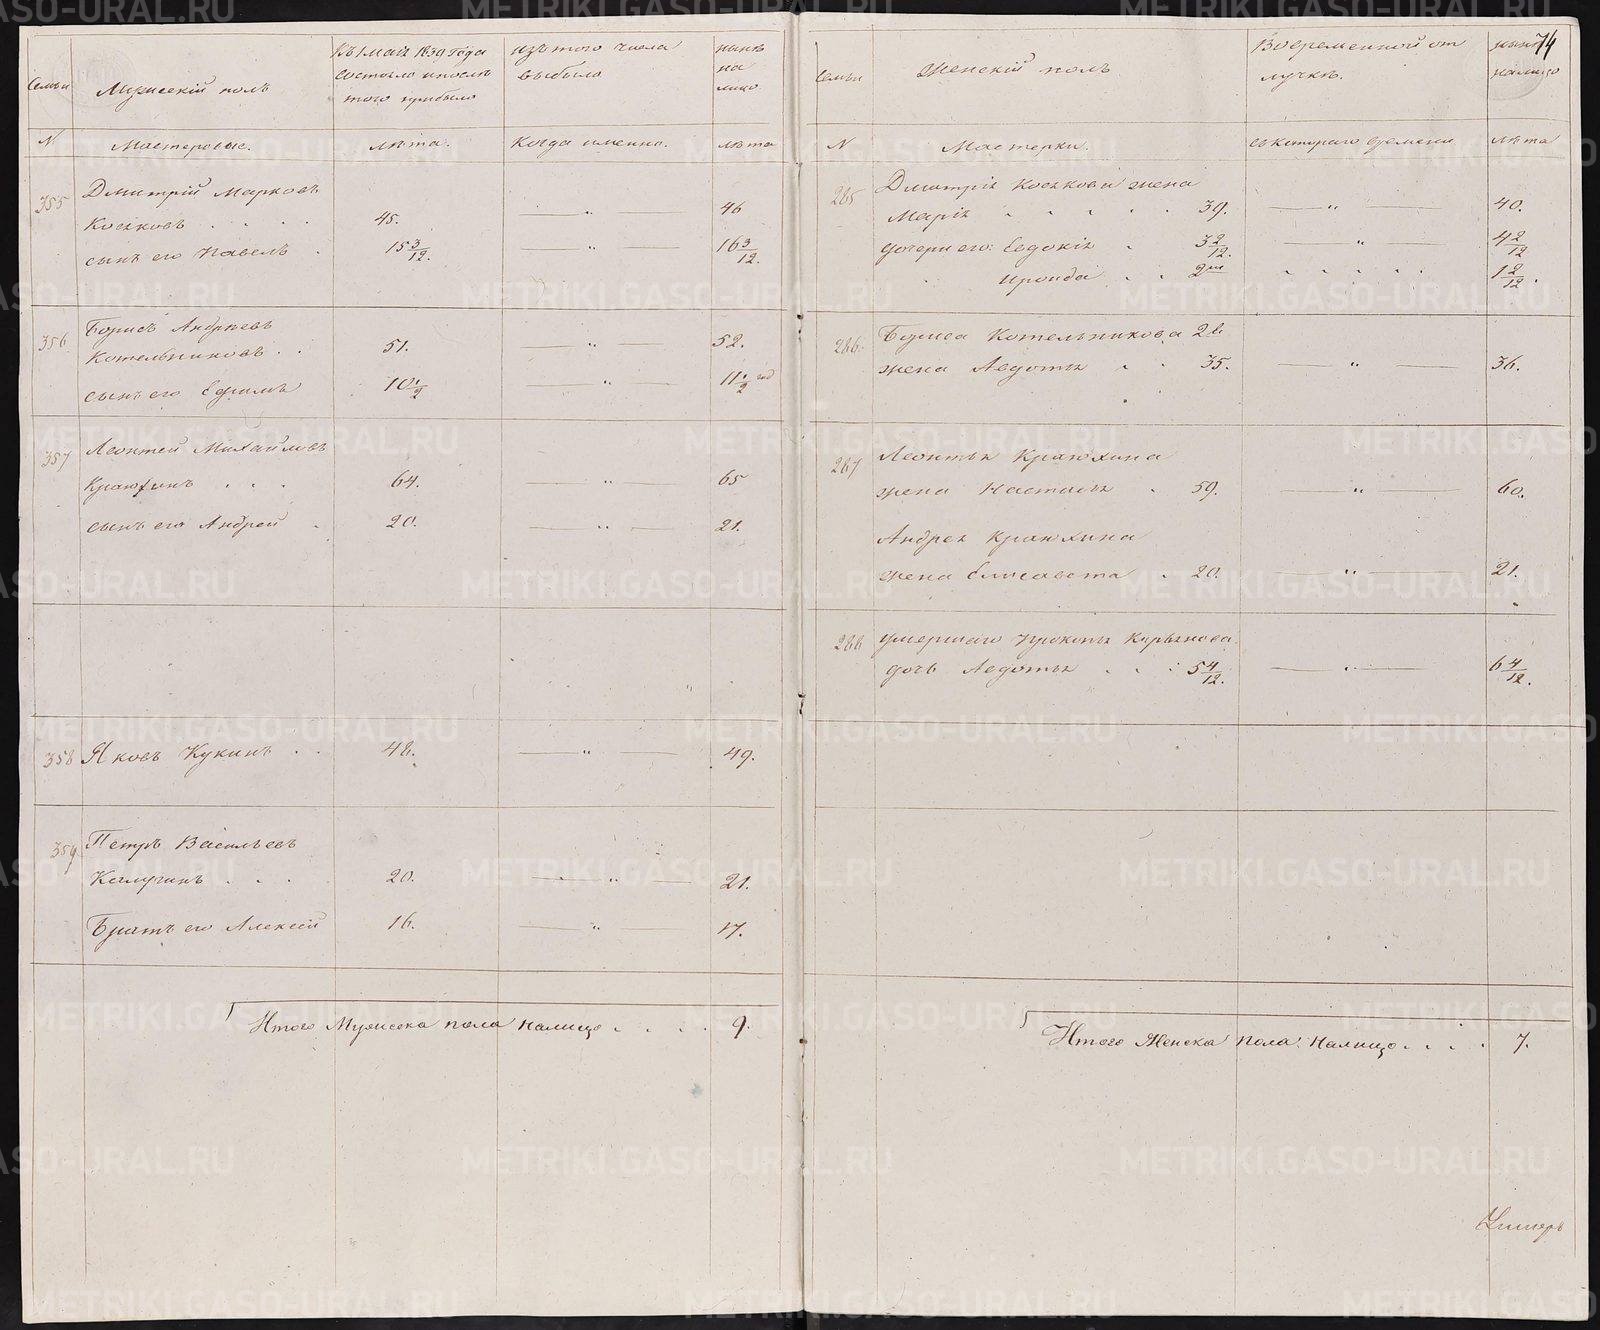 Семьи
Мужескій полъ
Къ 1 маія 1839 года
состояло и после
того прибыло
изъ того числа
выбыло
нынѣ
на
лицо
N
Мастеровые.
лѣта.
Когда именно.
лѣта
355
Дмитрій Марковъ
Косяковъ . . . 45. — „ — 46
сынъ его Павелъ . 15 3/12. — „ — 16 3/12.
356
Борисъ Андреевъ
Котельниковъ . . 51. — „ — 52.
сынъ его Ефимъ 10 1/2 — „ — 11 1/2 год
357
Леонтей Михайловъ
Кранхинъ . . . 64. — „ — 65
сынъ его Андрей . 20. — „ — 21.
358 Яковъ Кукинъ . . 48. — „ — 49.
359
Петръ Васильевъ
Калугинъ . . . 20. — „ — 21.
Братъ его Алексей 16. — „ — 17.
Итого Мужеска пола налицо . . . . 9.
74
Семьи
Женскій полъ
Во временной от
лучкѣ.
нынѣ
налицо
N
Мастерки.
съ котораго времени
лѣта
285
Дмитрія Косякова жена
Марія . . . . . 39. — „ — 40.
дочери его: Евдокія . 3 2/12. — „ — 4 2/12
Ироида . . 2 м . . . . . 1 2/12.
286.
Бориса Котельникова 2я
жена Авдотья . . 35. — „ — 36.
287
Леонтья Кранхина
жена Настасья . 59. — „ — 60.
Андрея Кранхина
жена Елисавета . 20. — „ — 21.
288
умершаго Прокопья
дочь Авдотья . . . 5 4/12. — „ — 6 4/12.
Итого Женска пола налицо . . . . 7.
METRIKI.GASO-URAL.RU